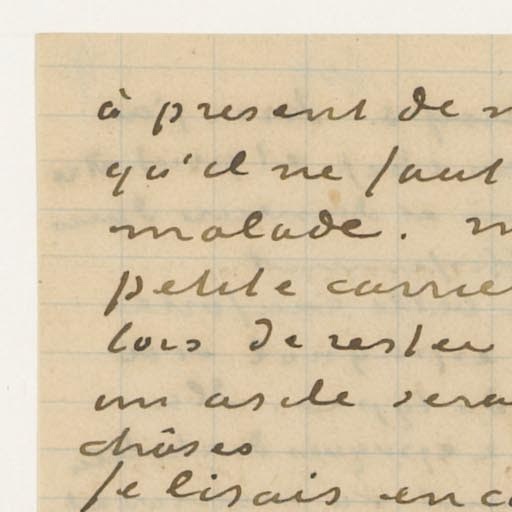 à present de
qu'il ne faut
malade.
petite carrie
lors de rester
un asile sera
chôses
Je lisais enc